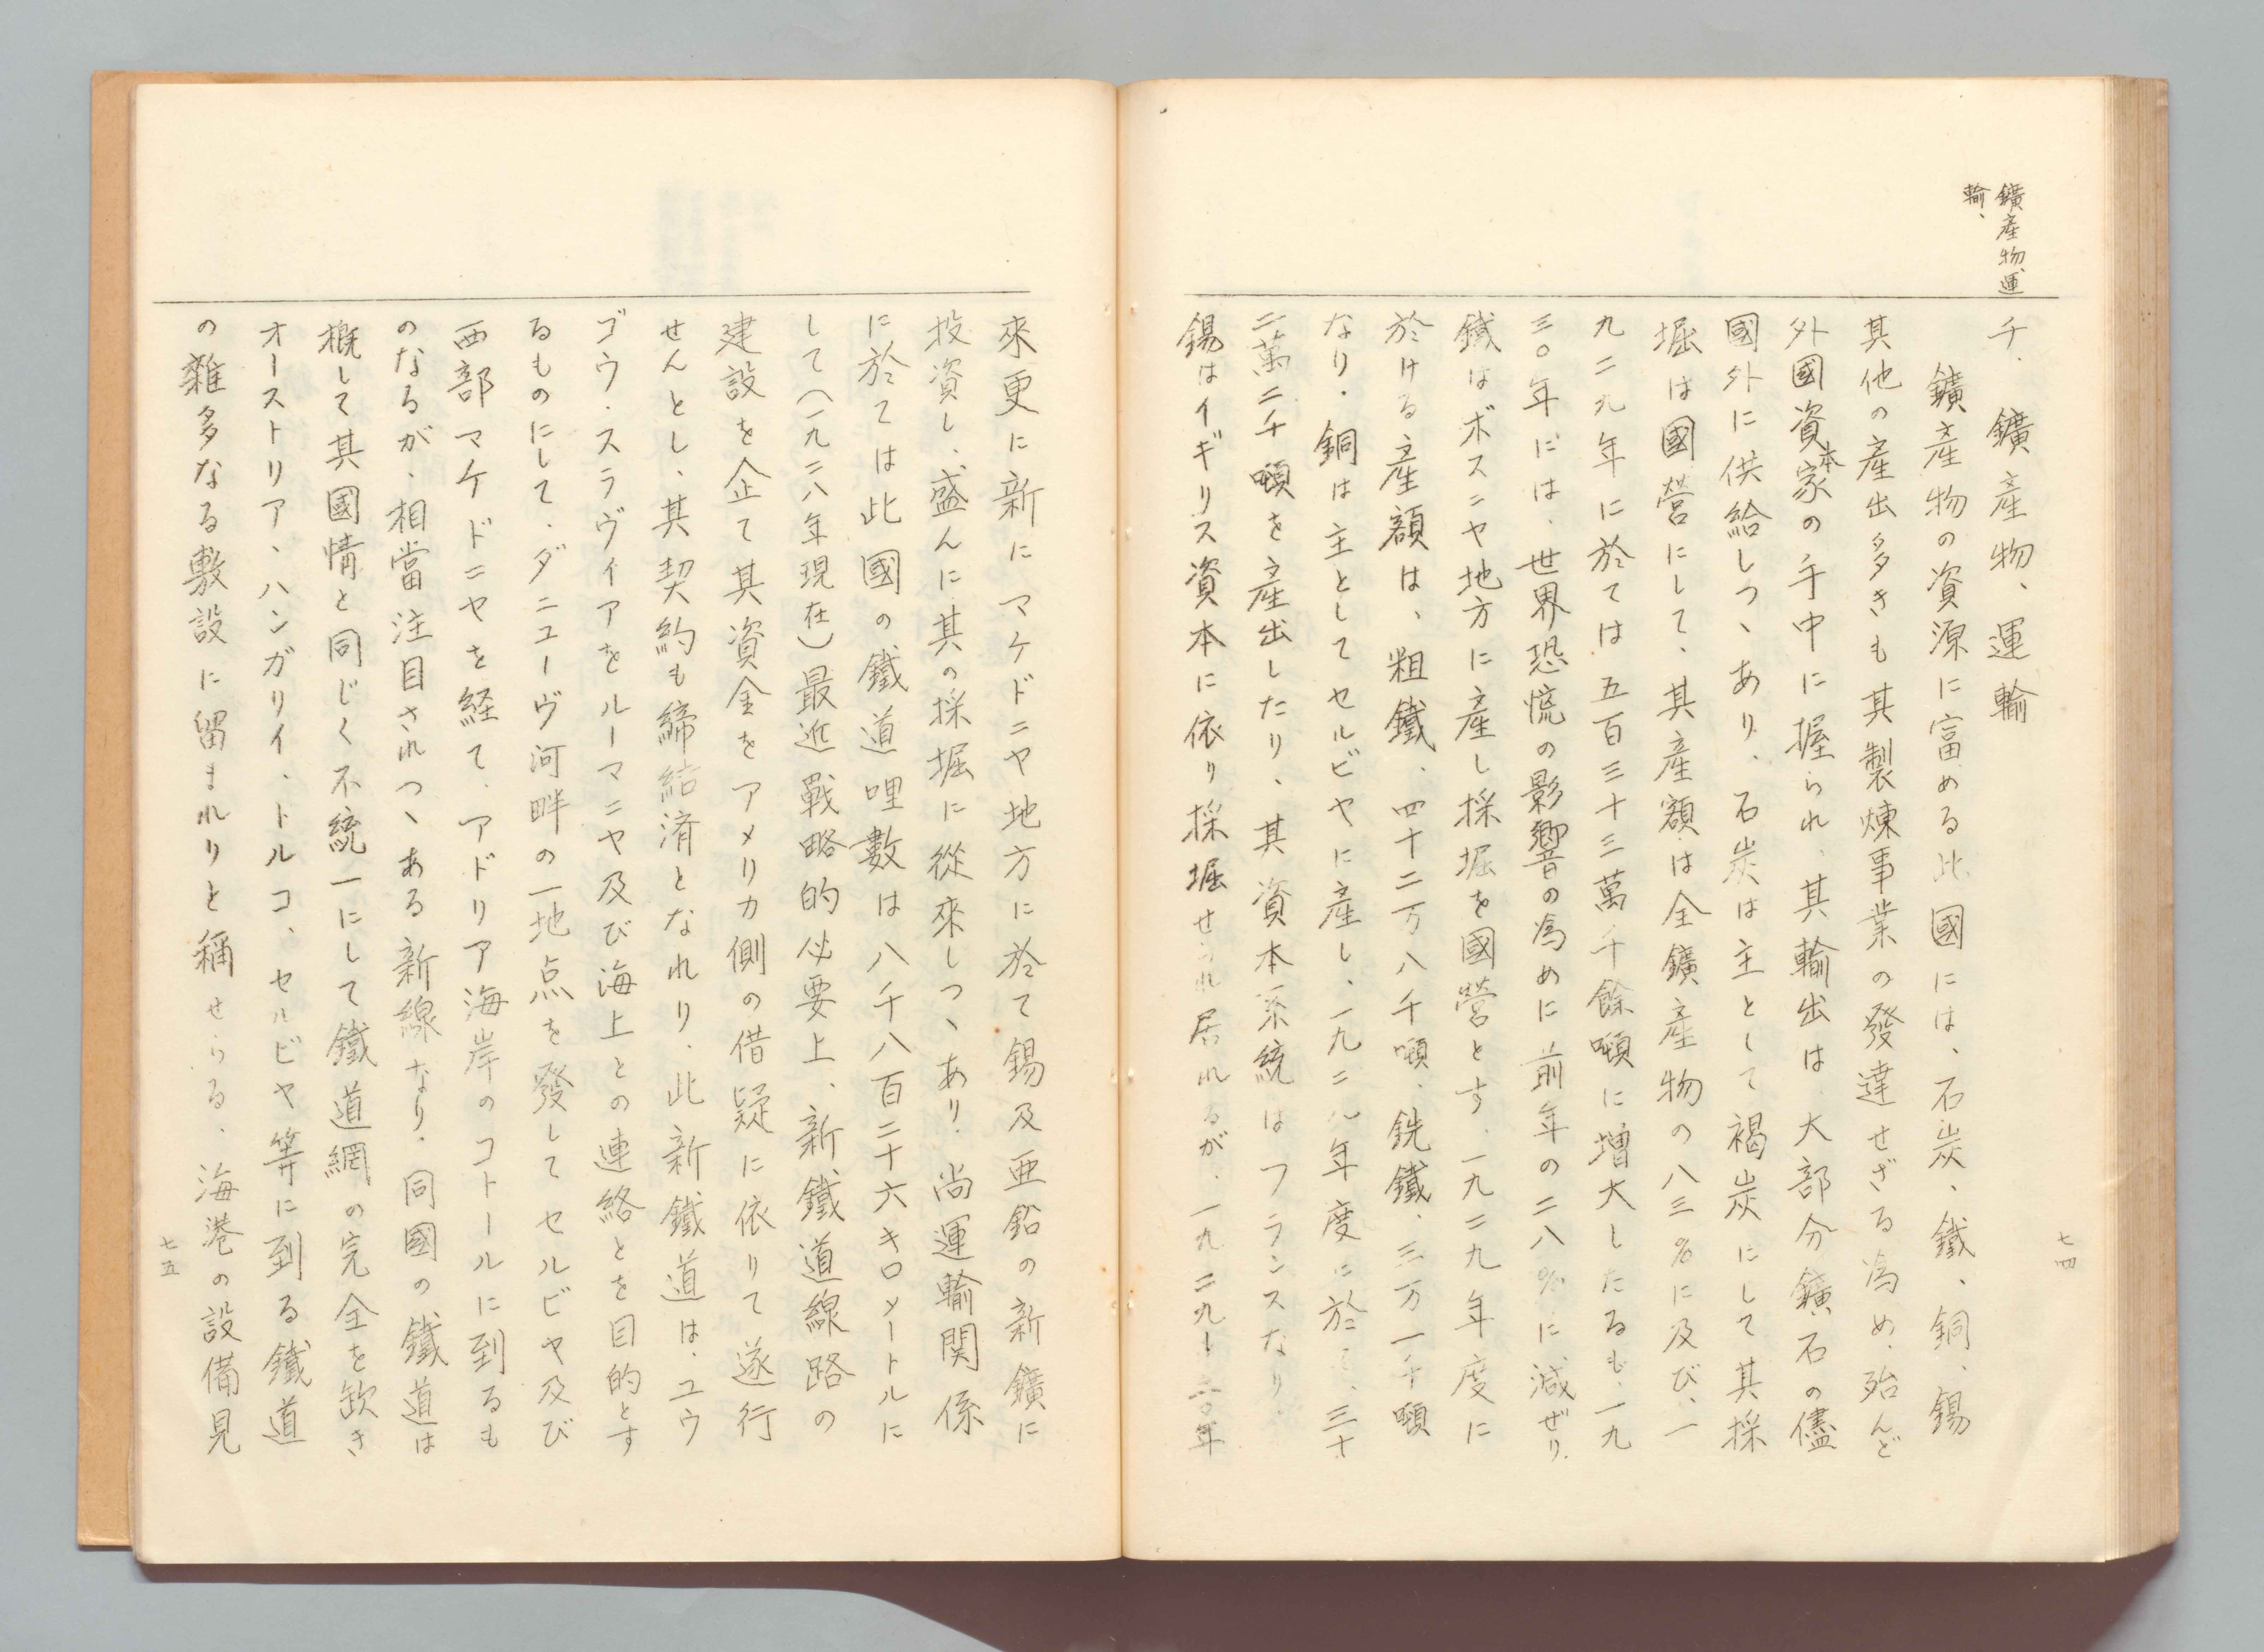 鑛產物、運
輸、
七四
千．鑛產物、運輸
鑛產物の資源に富める此國には、石炭、鐵、銅、錫
其他の產出多きも其製煉事業の發達せざる為め、殆んど
外國資本家の手中に握られ、其輸出は、大部分鑛石の儘
國外に供給しつゝあり、石炭は主として褐炭にして其採
堀は國營にして、其產額は全鑛產物の八三％に及び、一
九二九年に於ては五百三十三萬千餘噸に增大したるも、一九
三〇年には、世界恐慌の影響の為めに前年の二八％に減ぜり．
鐵はボスニヤ地方に產し採堀を國營とす、一九二九年度に
於ける產額は、粗鐵、四十二万八千噸、銑鐵、三万一千噸
なり．銅は主としてセルビヤに產し、一九二八年度に於て、三十
二萬二千噸を產出したり、其資本系統はフランスなり．
錫はイギリス資本に依り採堀せられ居れるが、一九二九ー三〇年
來更に新にマケドニヤ地方に於て錫及亜鉛の新鑛に
投資し、盛んに其の採堀に從來しつゝあり．尚運輸関係
に於ては此國の鐵道哩數は八千八百二十六キロメートルに
して（一九二八年現在）最近戰略的必要上、新鐵道線路の
建設を企て其資金をアメリカ側の借疑に依りて遂行
せんとし、其契約も締結済となれり．此新鐵道は、ユウ
ゴウ．スラヴィアをルーマニヤ及び海上との連絡とを目的とす
るものにして、ダニューヴ河畔の一地点を發してセルビヤ及び
西部マケドニヤを経て、アドリア海岸のコトールに到るも
のなるが、相當注目されつゝある新線なり．同國の鐵道は
概して其國情と同じく不統一にして鐵道網の完全を欽き
オーストリア、ハンガリイ、トルコ、セルビヤ等に到る鐵道
の雜多なる敷設に留まれりと稱せらる、海港の設備見
七五